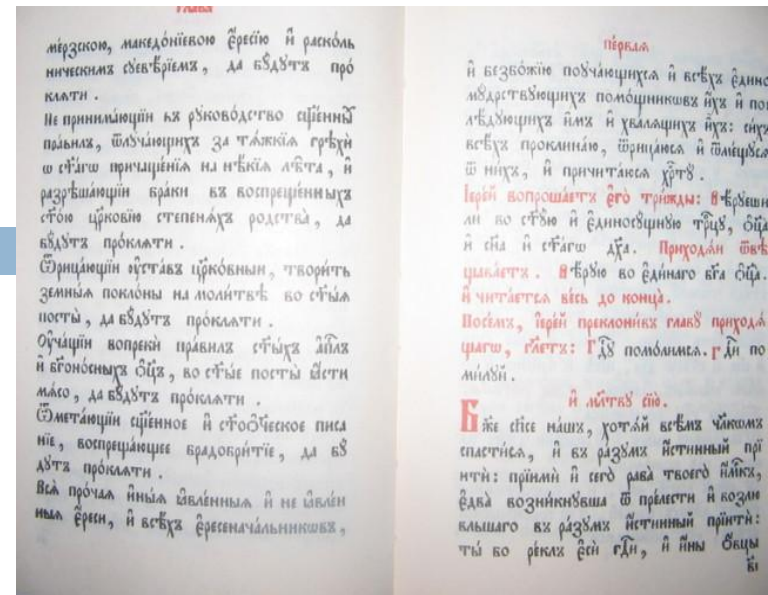 Глава
ме́рзскою, македо́нїевою є҆ресїю и҆ раско́ль
ническимъ суеве́рїемъ, да бꙋ́дꙋтъ про́
клѧти.
Не принима́ющїи въ рꙋково́дство сщ҃е́нныⷯ
пра́вилъ, ѿлꙋча́ющихъ за тѧ́жкїѧ грѣхѝ
ѡ ст҃а́гѡ причаще́нїѧ на нѣ́кїѧ лѣ̑та, и҆
разрѣша́ющїи бра́ки въ воспреще́нныхъ
ст҃о́ю цр҃ко́вїю степенѧ́хъ родства̀, да
бꙋ́дꙋтъ про́клѧти.
Ѿрица́ющїи ᲂу҆ста́въ цр҃ко́вный, твори́ть
земны́ѧ покло́ны на моли́твѣ во ст҃ы́ѧ
посты̀, да бꙋ́дꙋтъ про́клѧти.
Оу҆ча́щїи вопрекѝ пра́вилъ ст҃ы́хъ а҆пⷭ҇лъ
и҆ бг҃оно́сныхъ ѻ҆ц҃ъ, во ст҃ы́е посты̀ ꙗ҆́сти
мѧ́со, да бꙋ́дꙋтъ про́клѧти.
Ѿмета́ющїи сщ҃е́нное и҆ ст҃оѻте́ческое писа
нїе, воспреща́ющее брадобри́тїе, да бꙋ́
дꙋтъ про́клѧти.
Всѧ̑ про́чаѧ и҆ны́ѧ ꙗ҆вле́нныѧ и҆ не ꙗ҆вле́н
ныѧ є҆́реси, и҆ всѣ́хъ є҆ресенача́льникѡвъ,
пе́рваѧ
и҆ безбо́жїю поꙋча́ющихсѧ и҆ всѣ́хъ є҆дино
мꙋ́дрствꙋющихъ помо́щникѡвъ и҆́хъ и҆ пос
лѣ́дꙋющихъ и҆̀мъ и҆ хва́лѧщихъ и҆́хъ: си́хъ
всѣ́хъ проклина́ю, ѿрица́юсѧ и҆ ѿмещꙋ́сѧ
ѿ ни́хъ, и҆ причита́юсѧ хрⷭ҇тꙋ̀.
І҆ере́й вопроша́етъ є҆го̀ три́жды: Вѣ́рꙋеши
ли во ст҃ꙋ́ю и҆ є҆диносꙋ́щнꙋю трⷪ҇цꙋ, ѻ҆ц҃а̀
и҆ сн҃а и҆ ст҃а́гѡ дх҃а. Приходѧ́й ѿвѣ
щава́етъ. Вѣ́рꙋю во є҆ди́наго бг҃а ѻ҆ц҃а̀.
И҆ чита́етсѧ ве́сь до конца̀.
Посе́мъ, і҆ере́й преклони́въ главꙋ̀ приходѧ́
щагѡ, гл҃етъ: Гдⷭ҇ꙋ помо́лимсѧ. Гдⷭ҇и по
ми́лꙋй.
И҆ мл҃твꙋ сїю̀.
Бж҃е сп҃се на́шъ, хотѧ́й всѣ́мъ чл҃кѡмъ
спасти́сѧ, и҆ въ ра́зꙋмъ и҆́стинный прї
итѝ: прїимѝ и҆ сего̀ раба̀ твоего̀ и҆́мⷬ҇къ,
є҆два̀ возни́кнꙋвша ѿ пре́лести и҆ возлю
бльшаго въ ра́зꙋмъ и҆́стинный прїитѝ:
ты́ бо ре́клъ є҆сѝ гдⷭ҇и, и҆ и҆́ны ѻ҆́вцы
в҃і